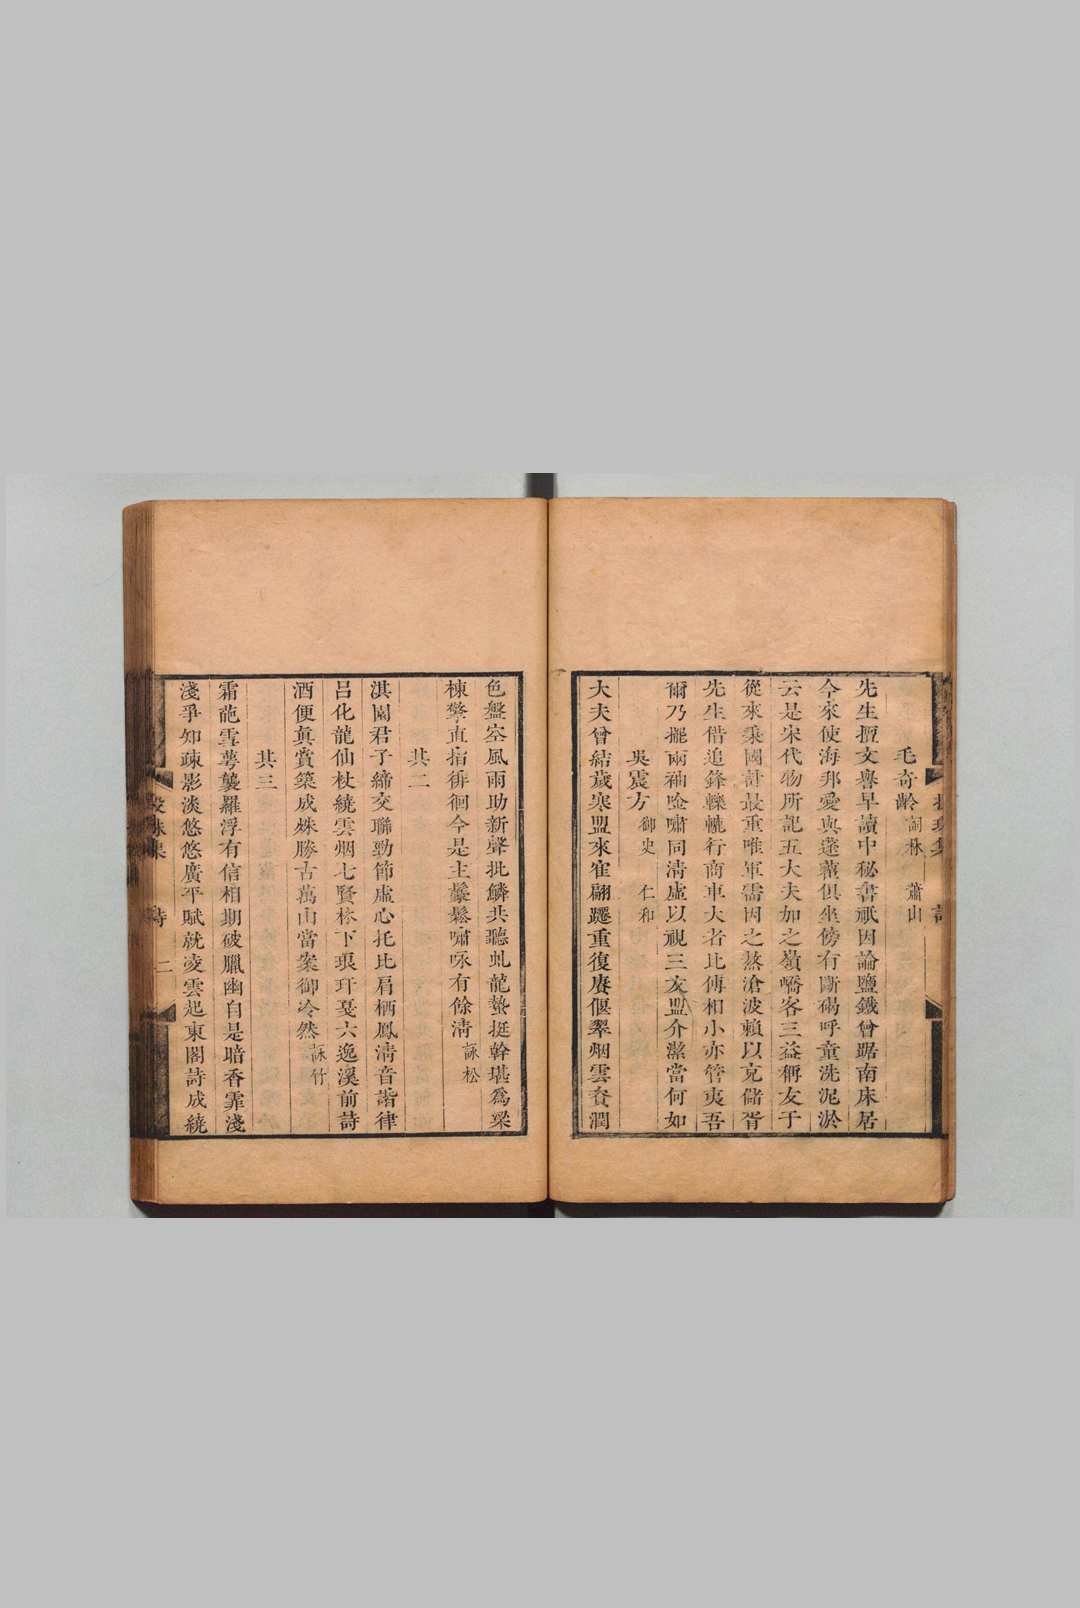 毛奇齡 詞林 蕭山
先生擅文譽早讀中秘書祇因論鹽鐵曾踞南床居
今來使海邦愛與蓬藋俱坐傍有斷碣呼童洗泥淤
云是宋代物所記五大夫加之嶺嶓客三益稱友于
從來乗國計最重唯軍需因之熬滄波賴以克儲胥
先生借追鋒轢轆行商車大者比傅相小亦管夷吾
爾乃擺兩袖唫嘯同清虛以視三友盟介潔當何如
吳震方 御史 仁和
大夫曾結歲寒盟來隺翩躚重復賡偃翠烟雲資潤
色盤空風雨助新聲批鱗共聽虬龍蟄挺幹堪爲梁
棟擎直指徘徊今是主鬖鬆嘯咏有餘清 詠松
其二
淇園君子締交聯勁節虛心托比肩栖鳳清音諧律
呂化龍仙杖繞雲烟七賢林下琅玕戛六逸溪前詩
酒便真賞築成殊勝古萬山當案御冷然 詠竹
其三
霜葩雪萼襲羅浮有信相期破臘幽自是暗香霏淺
淺爭知疎影淡悠悠廣平賦就凌雲起東閣詩成繞
詩 二